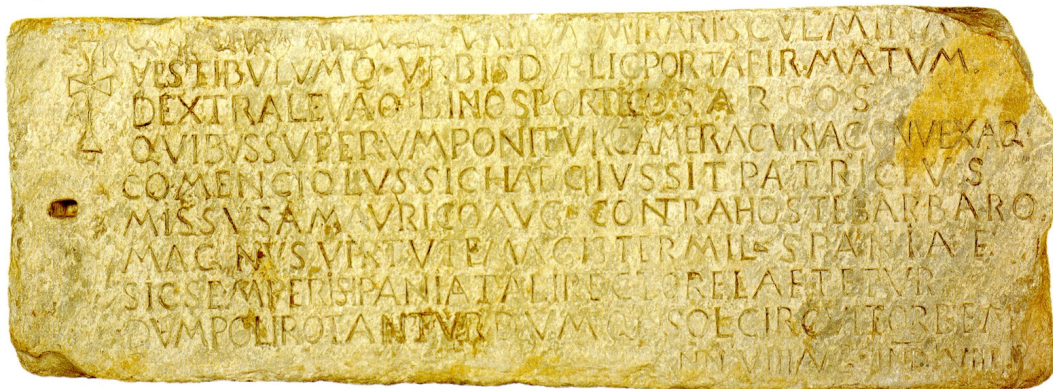 MIRARIS CULMINA
VESTIBULUMQ· VRBIS DVPLICI PORTA FIRMATVM·
DEXTRA LEVAQ· BINOS PORTICOS ARCOS
QVIBVS SVPERVM PONITVR CAMERA CVRIA CONVEXAQ·
COMENCIOLVS SIC HAEC IVSSIT PATRICIVS
MISSVS A MAVRICIO AVG· CONTRA HOSTE BARBARO
MAGNVS VIRTVTE MAGISTER MIL· SPANIAE
SIC SEMPER ISPANIA TALI RECTORE LAETETVR
DVM POLI ROTANTVR DVMQ· SOL CIRCVIT ORBEM
VIII AVG IND VIII